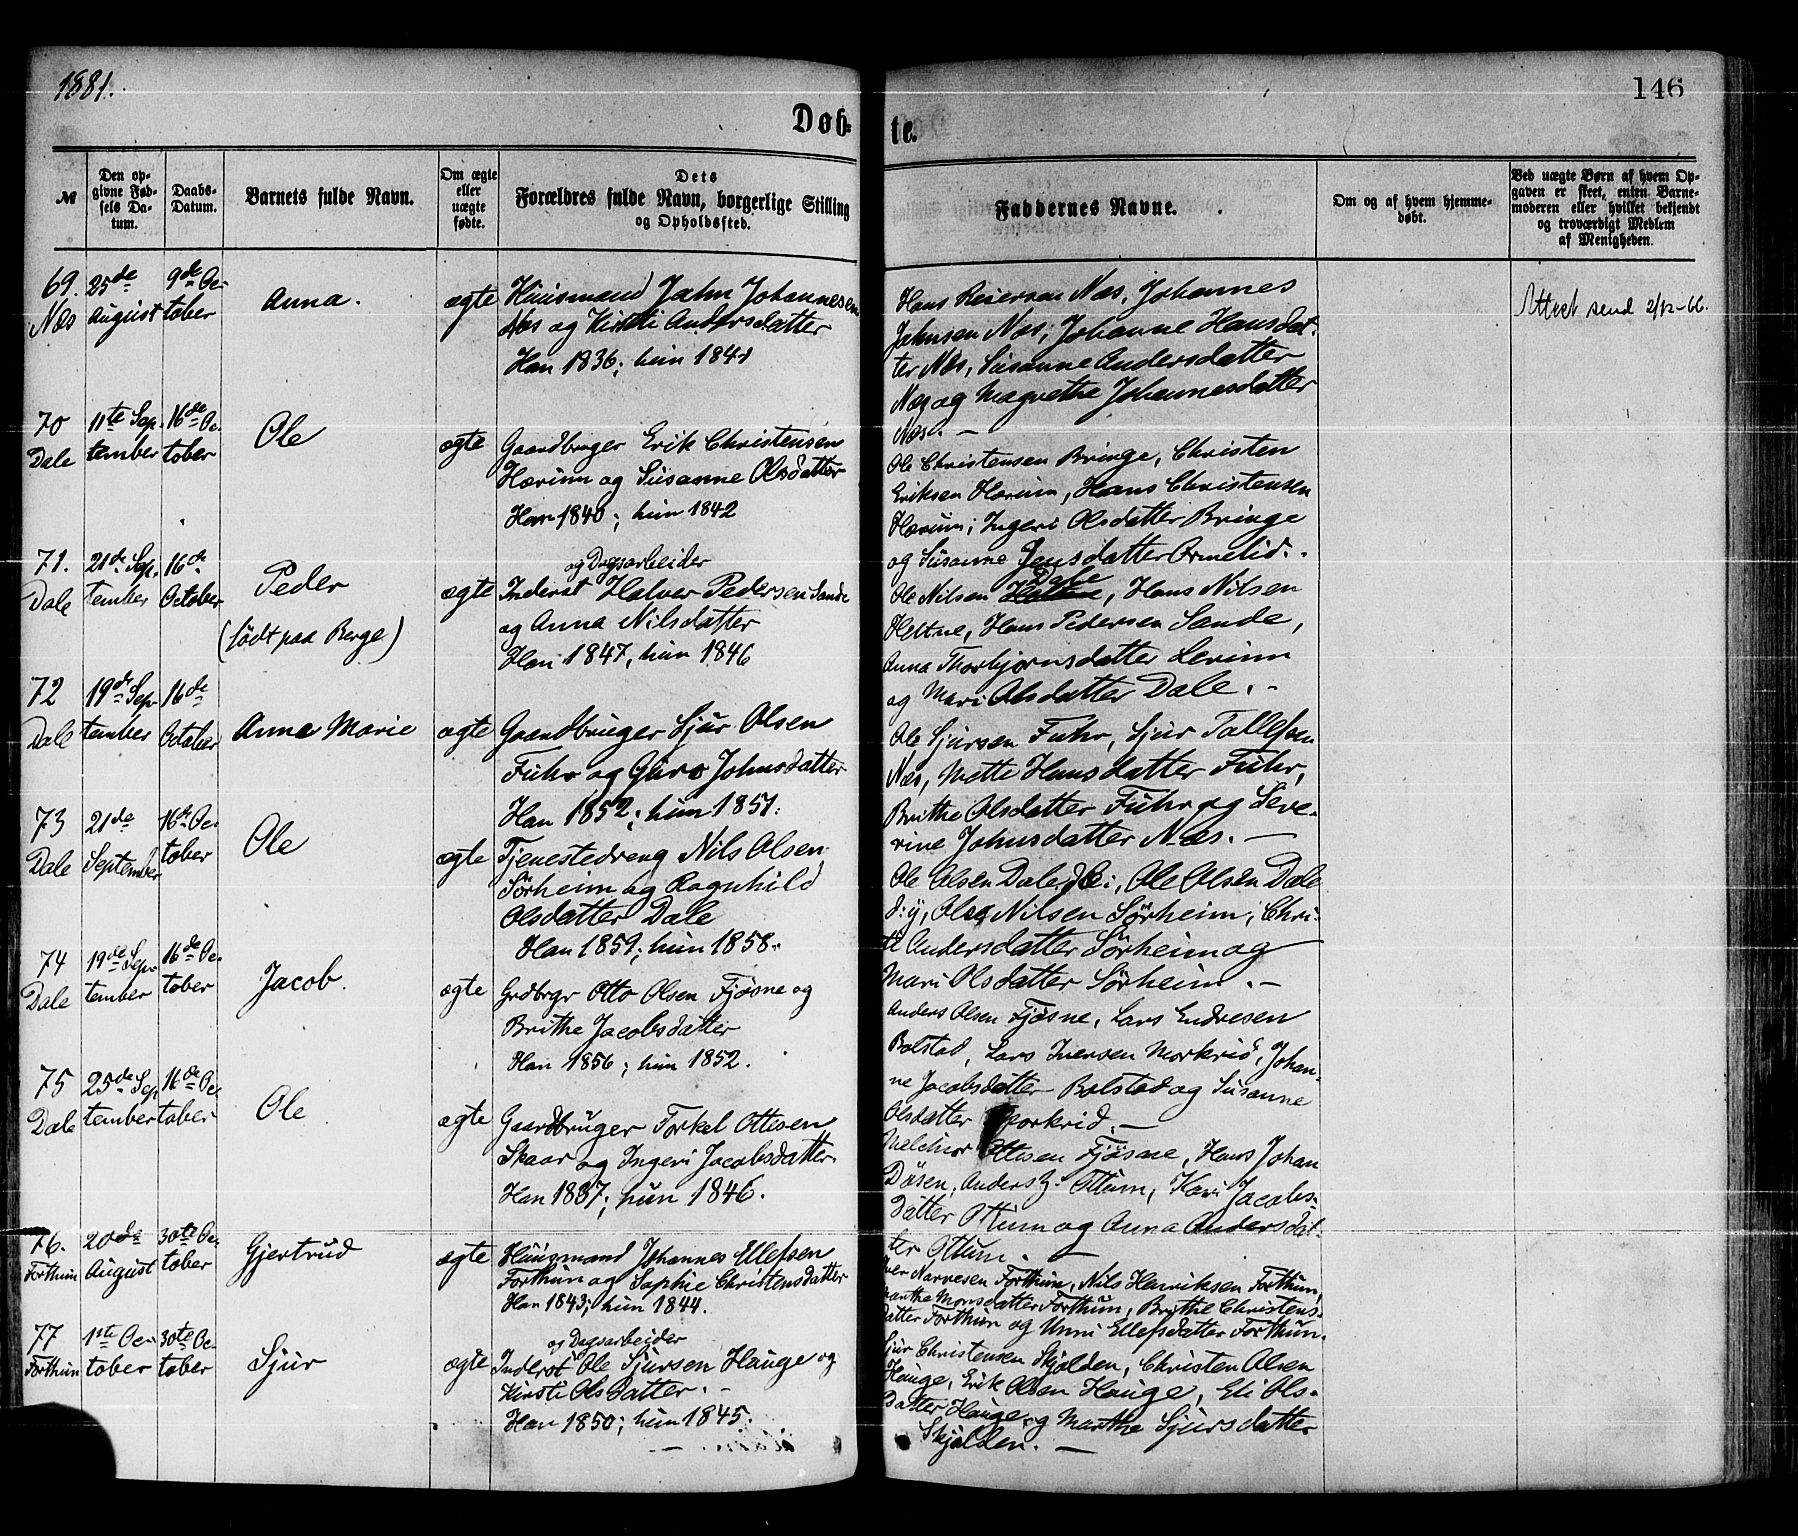 1881.
146
Døb-
te.
№
Den op-
givne Fød-
sels Da-
tum.
Daabs-
Datum.
Barnets fulde Navn.
Om ægte
eller
uægte
fødte.
Dets
Forældres fulde Navn, borgerlige Stilling
og Opholdssted.
Faddernes Navne.
Om og af hvem hjemme-
døbt.
Ved uægte Børn af hvem Op-
gaven er skeet, enten Barne-
moderen eller hvilket bekjendt
og troværdigt Medlem
af Menigheden.
69. 25de 9de Oc-
Næs August tober Anna. ægte Huusmand Jahn Johannesen
Næs og Kirsti Andersdatter
Han 1836; hun 1841
Hans Reiersen Næs, Johannes
Jahnsen Næs, Johanne Hansdat-
ter Næs, Susanne Andersdatter
Næs og Magrethe Johannesdatter
Næs. —
Attest send 2/12-66.
70 11te Sep- 16de Oc-
Dale tember tober Ole ægte Gaardbruger Erik Christensen
Hærum og Susanne Olsdatter
Han 1840; hun 1842
Ole Christensen Bringe, Christen
Eriksen Hærum, Hans Christensen
Hærum; Ingeri Olsdatter Bringe
og Susanne Jensdatter Ormelid. -
71. 21de Sep- 16de
Dale tember October Peder
(født paa Berge)
ægte
og Dagsarbeider
Inderst Halvor Pedersen Sande
og Anna Nilsdatter
Han 1847, hun 1846
Dale
Ole Nilsen , Hans Nilsen
Heltne, Hans Pedersen Sande,
Anna Thorbjørnsdatter Lerum
og Mari Olsdatter Dale. -
72 19de Sep- 16de
Dale tember October Anna Marie ægte Gaardbruger Sjur Olsen
Fuhr og Guro Johnsdatter
Han 1852; hun 1851.
Ole Sjursen Fuhr, Sjur Tollefsen
Næs, Mette Hansdatter Fuhr,
Brithe Olsdatter Fuhr og Seve-
rine Johnsdatter Næs. —
73 21de 16de Oc-
Dale September tober Ole ægte Tjenestedreng Nils Olsen
Sørheim og Ragnhild
Olsdatter Dale
Han 1859; hun 1858.
Ole Olsen Dale , Ole Olsen Dale
d:y, Nilsen Sørheim, Chri-
ti Andersdatter Sørheim og
Mari Olsdatter Sørheim. —
74 19de Sep- 16de Oc-
Dale tember tober Jacob. ægte Grdbrgr Otto Olsen Fjøsne og
Brithe Jacobsdatter
Han 1856; hun 1852.
Anders Olsen Fjøsne, Lars Endresen
Bolstad, Lars Iversen Morkrid, Johan-
ne Jacobsdatter Bolstad og Susanne
Olsdatter Morkrid. —
75 25de Sep- 16de Oc-
Dale tember tober Ole ægte Gaardbruger Torkel Ottesen
Skaar og Ingeri Jacobsdatter.
Han 1837; hun 1846.
Melchior Ottesen Fjøsne, Hans Johan
Døsen, Anders Ottum, Kari Jacobs-
datter Ottum og Anna Andersdat-
ter Ottum. —
76. 20de 30te Oc-
Forthun August tober Gjertrud ægte Huusmand Johannes Ellefsen
Forthun og Sophie Christensdatter
Han 1843; hun 1844.
Iver Narvesen Forthun, Nils Henriksen Forthun,
Marthe Monsdatter Forthun, Brithe Christens-
datter Forthun og Unni Ellefsdatter Forthun.
77 1ste Oc- 30te Oc-
Forthun tober tober Sjur ægte
og Dagsarbeider
Inderst Ole Sjursen Hauge og
Kirsti Olsdatter. -
Han 1850; hun 1845.
Sjur Christensen Skjolden, Christen Olsen
Hauge, Erik Olsen Hauge, Eli Ols-
datter Hauge og Marthe Sjursdatter
Skjolden. —